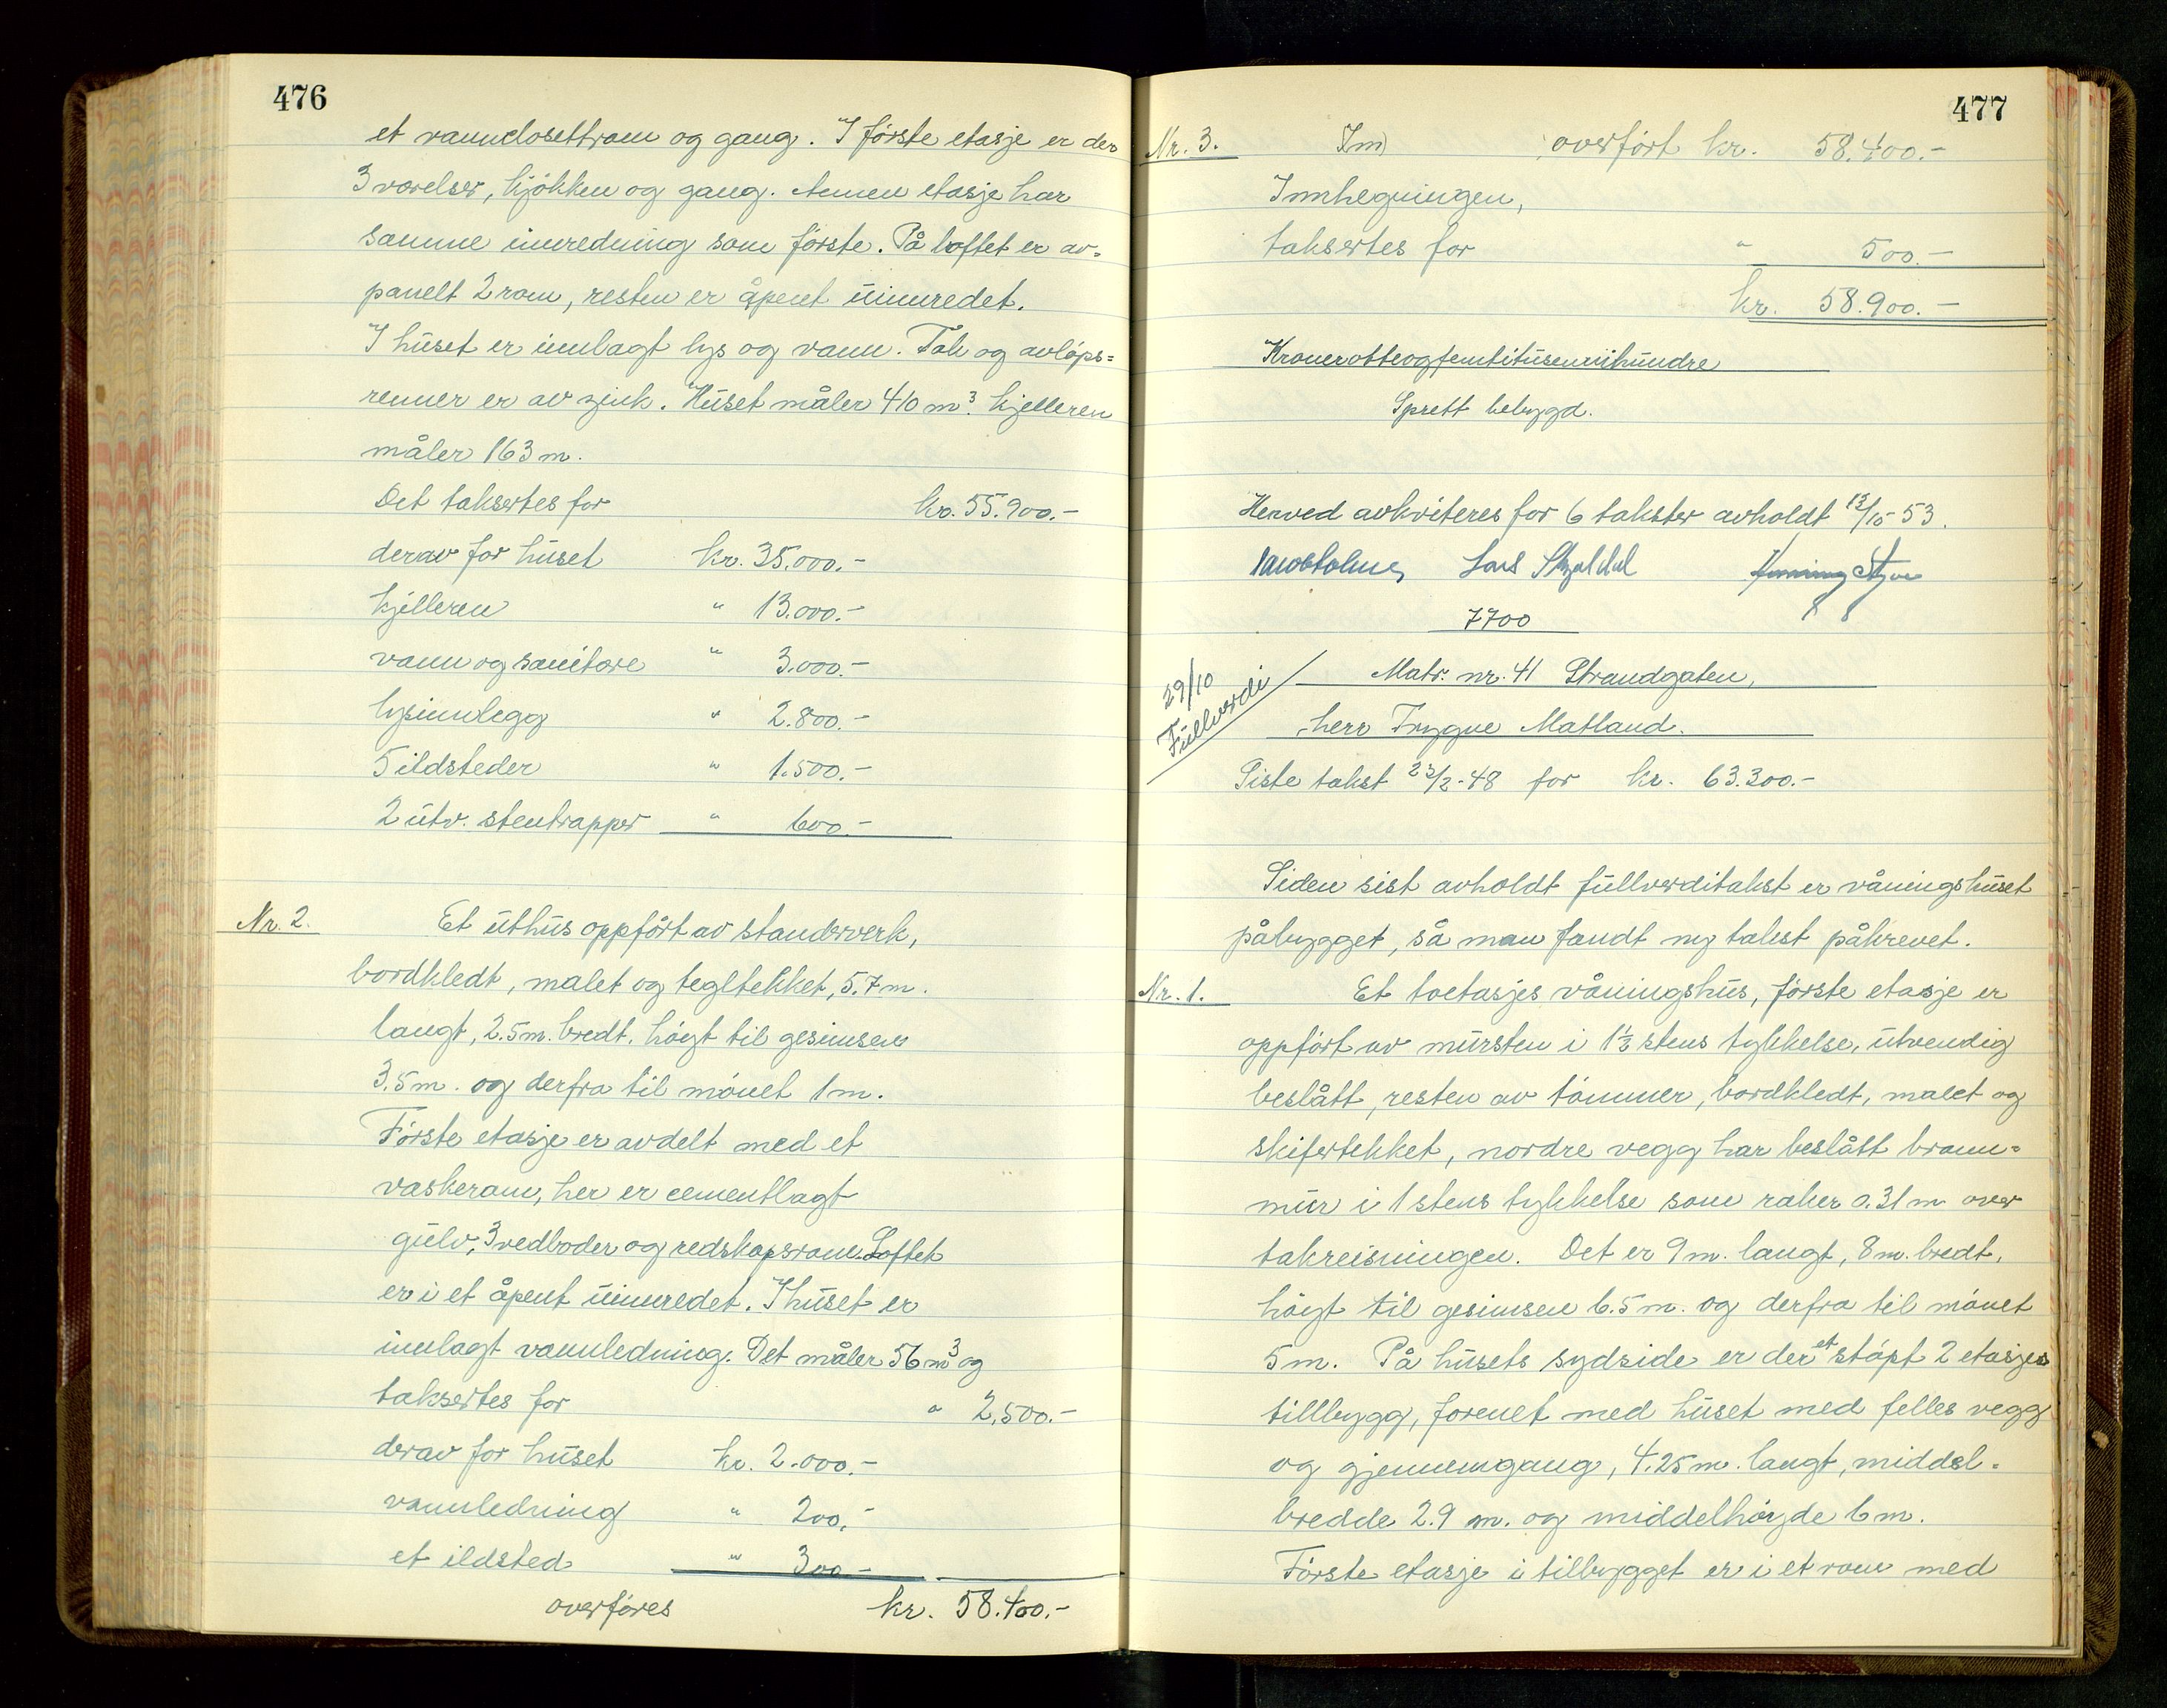 476
et vannclosettrom og gang. I förste etasje er der
3 værelser, kjökken og gang. Annen etasje har
samme innredning som förste. På loftet er av-
panelt 2 rom, resten er åpent uinnredet.
I huset er innlagt lys og vann. Tak og avlöps=
renner er av zink. Huset måler 410 m³. kjelleren
måler 163 m.
Det taksertes for kr. 55.900.-
derav for huset kr. 35.000.-
kjelleren " 13.000.-
vann og sanitære " 3.000.-
lysinnlegg " 2.800.-
5 ildsteder " 1.500.-
2 utv. stentrapper " 600.-
Nr. 2. Et uthus oppfört av standerverk,
bordkledt, malet og tegltekket, 5.7 m.
langt, 2.5 m. bredt, höyt til gesimsen
3.5 m. og derfra til mönet 1 m.
Förste etasje er avdelt med et
vaskerom, her er cementlagt
gulv, 3 vedboder og redskapsrom. Loftet
er i et åpent uinnredet. I huset er
innlagt vannledning. Det måler 56 m³ og
taksertes for " 2,500.-
derav for huset kr. 2.000.-
vannledning " 200.-
et ildsted " 300.-
overföres kr. 58.400.-
477
Nr. 3. overfört kr. 58.400.-
Innhegningen,
taksertes for " 500.-
kr. 58.900.-
Kroner otteogfemtitusennihundre
Sprett bebygd.
Herved avkviteres for 6 takster avholdt 12/10-53.
Lars
7700
29/10
Fullverdi
Matr. nr. 41 Strandgaten,
herr Trygve Matland.
Siste takst 23/2-48 for kr. 63.300.-
Siden sist avholdt fullverditakst er våningshuset
påbygget, så man fandt ny takst påkrevet.
Nr. 1. Et toetasjes våningshus, förste etasje er
oppfört av mursten i 1½ stens tykkelse, utvendig
beslått, resten av tömmer, bordkledt, malet og
skifertekket, nordre vegg har beslått brann=
mur i 1 stens tykkelse som raker 0.31 m over
takreisningen. Det er 9 m. langt, 8 m. bredt,
höyt til gesimsen 6.5 m. og derfra til mönet
5 m. På husets sydside er der et stöpt 2 etasjes
tillbygg, forenet med huset med felles vegg
og gjennemgang, 4.25 m. langt, middel-
bredde 2.9 m. og middelhöyde 6 m.
Förste etasje i tilbygget er i et rom med